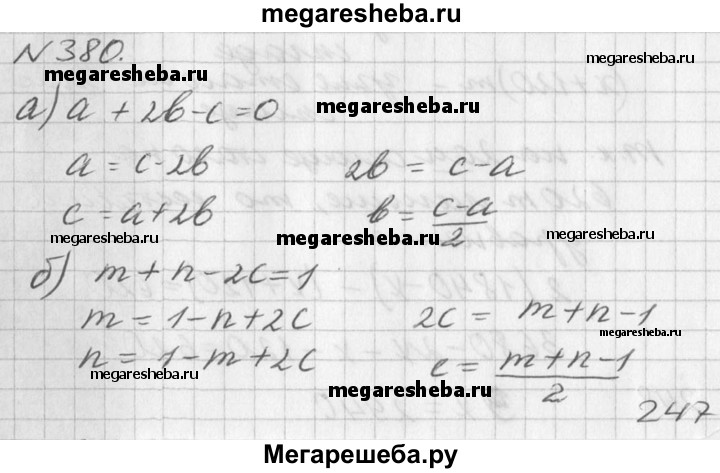 megaresheba.ru
№380.
megaresheba.ru
а) a + 2b - c = 0 megaresheba.ru
a = c - 2b 2b = c - a
c = a + 2b b = \frac{c-a}{2}
megaresheba.ru megaresheba.ru
б) m + n - 2c = 1
m = 1 - n + 2c 2c = m + n - 1
megaresheba.ru
n = 1 - m + 2c c = \frac{m+n-1}{2}
megaresheba.ru megaresheba.ru
247
Мегарешеба.ру